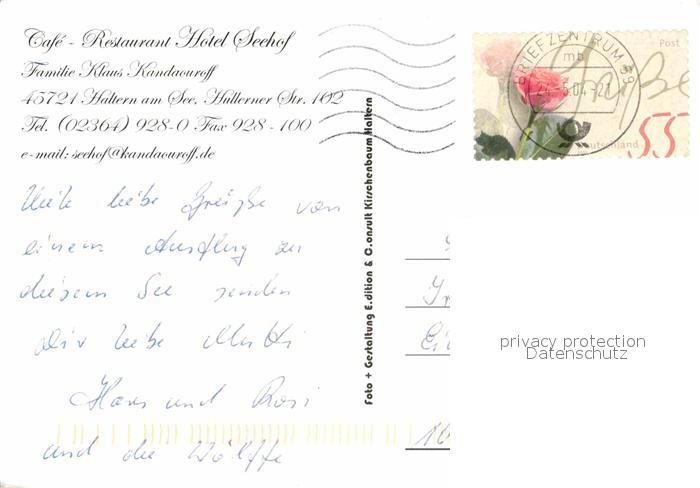 Café - Restaurant Hotel Seehof
Familie Klaus Kandaouroff
45721 Haltern am See. Hullerner Str. 102
Tel. (02364) 928-0 Fax 928 - 100
e-mail: seehof@kandaouroff.de
Viele liebe Grüße von
einem Ausflug zu
diesem See senden
dir liebe Mutti
Hans und Rosi
und die Wölffe
Foto + Gestaltung E.dition & C.onsult Kirschenbaum Haltern
BRIEFZENTRUM
mb
5.04-21
Post
Grüße
Deutschland
55
privacy protection
Datenschutz
10